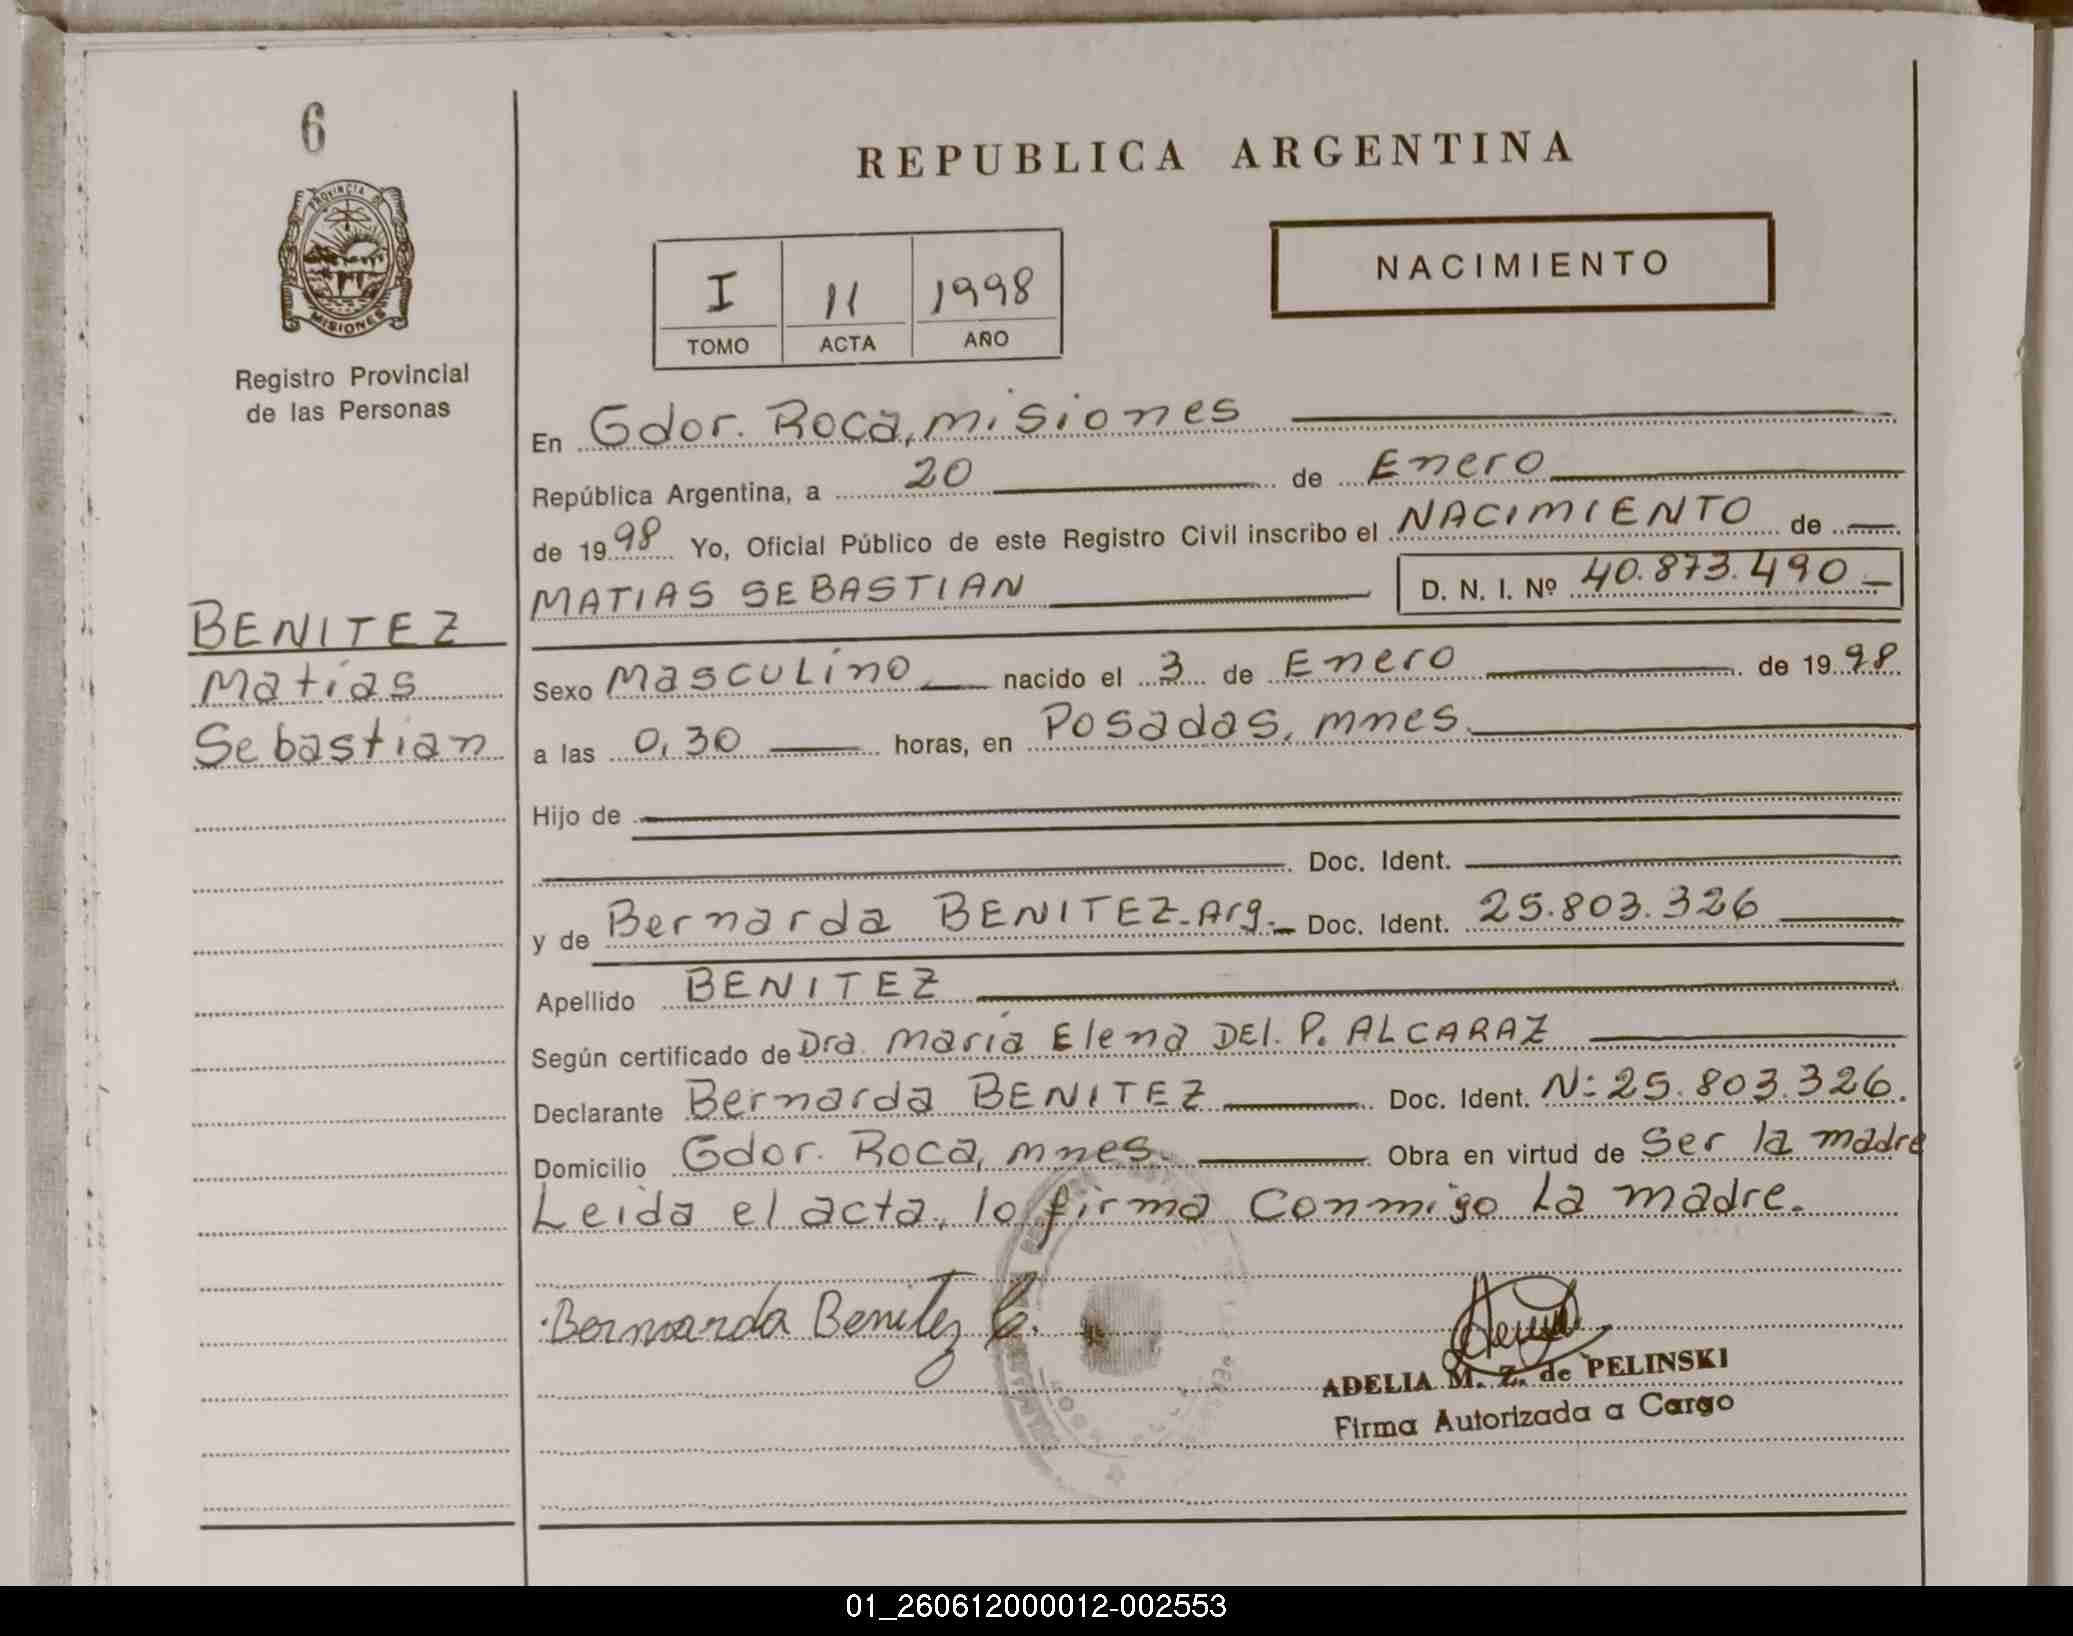 6
PROVINCIA DE
MISIONES
Registro Provincial
de las Personas
BENITEZ
Matías
Sebastian
REPUBLICA ARGENTINA
I 11 1998
TOMO ACTA AÑO
NACIMIENTO
En Gdor. Roca, misiones
República Argentina, a 20 de Enero
de 1998 Yo, Oficial Público de este Registro Civil inscribo el NACIMIENTO de
MATIAS SEBASTIAN D. N. I. Nº 40.873.490
Sexo Masculino nacido el 3 de Enero de 1998
a las 0,30 horas, en Posadas, mnes.
Hijo de
Doc. Ident.
y de Bernarda BENITEZ-Arg. Doc. Ident. 25.803.326
Apellido BENITEZ
Según certificado de Dra. María Elena DEl. P. ALCARAZ
Declarante Bernarda BENITEZ Doc. Ident. N: 25.803.326.
Domicilio Gdor. Roca, mnes. Obra en virtud de Ser la madre
Leida el acta, lo firma Conmigo La madre.
Bernarda Benitez
ADELIA M. Z. de PELINSKI
Firma Autorizada a Cargo
01_260612000012-002553